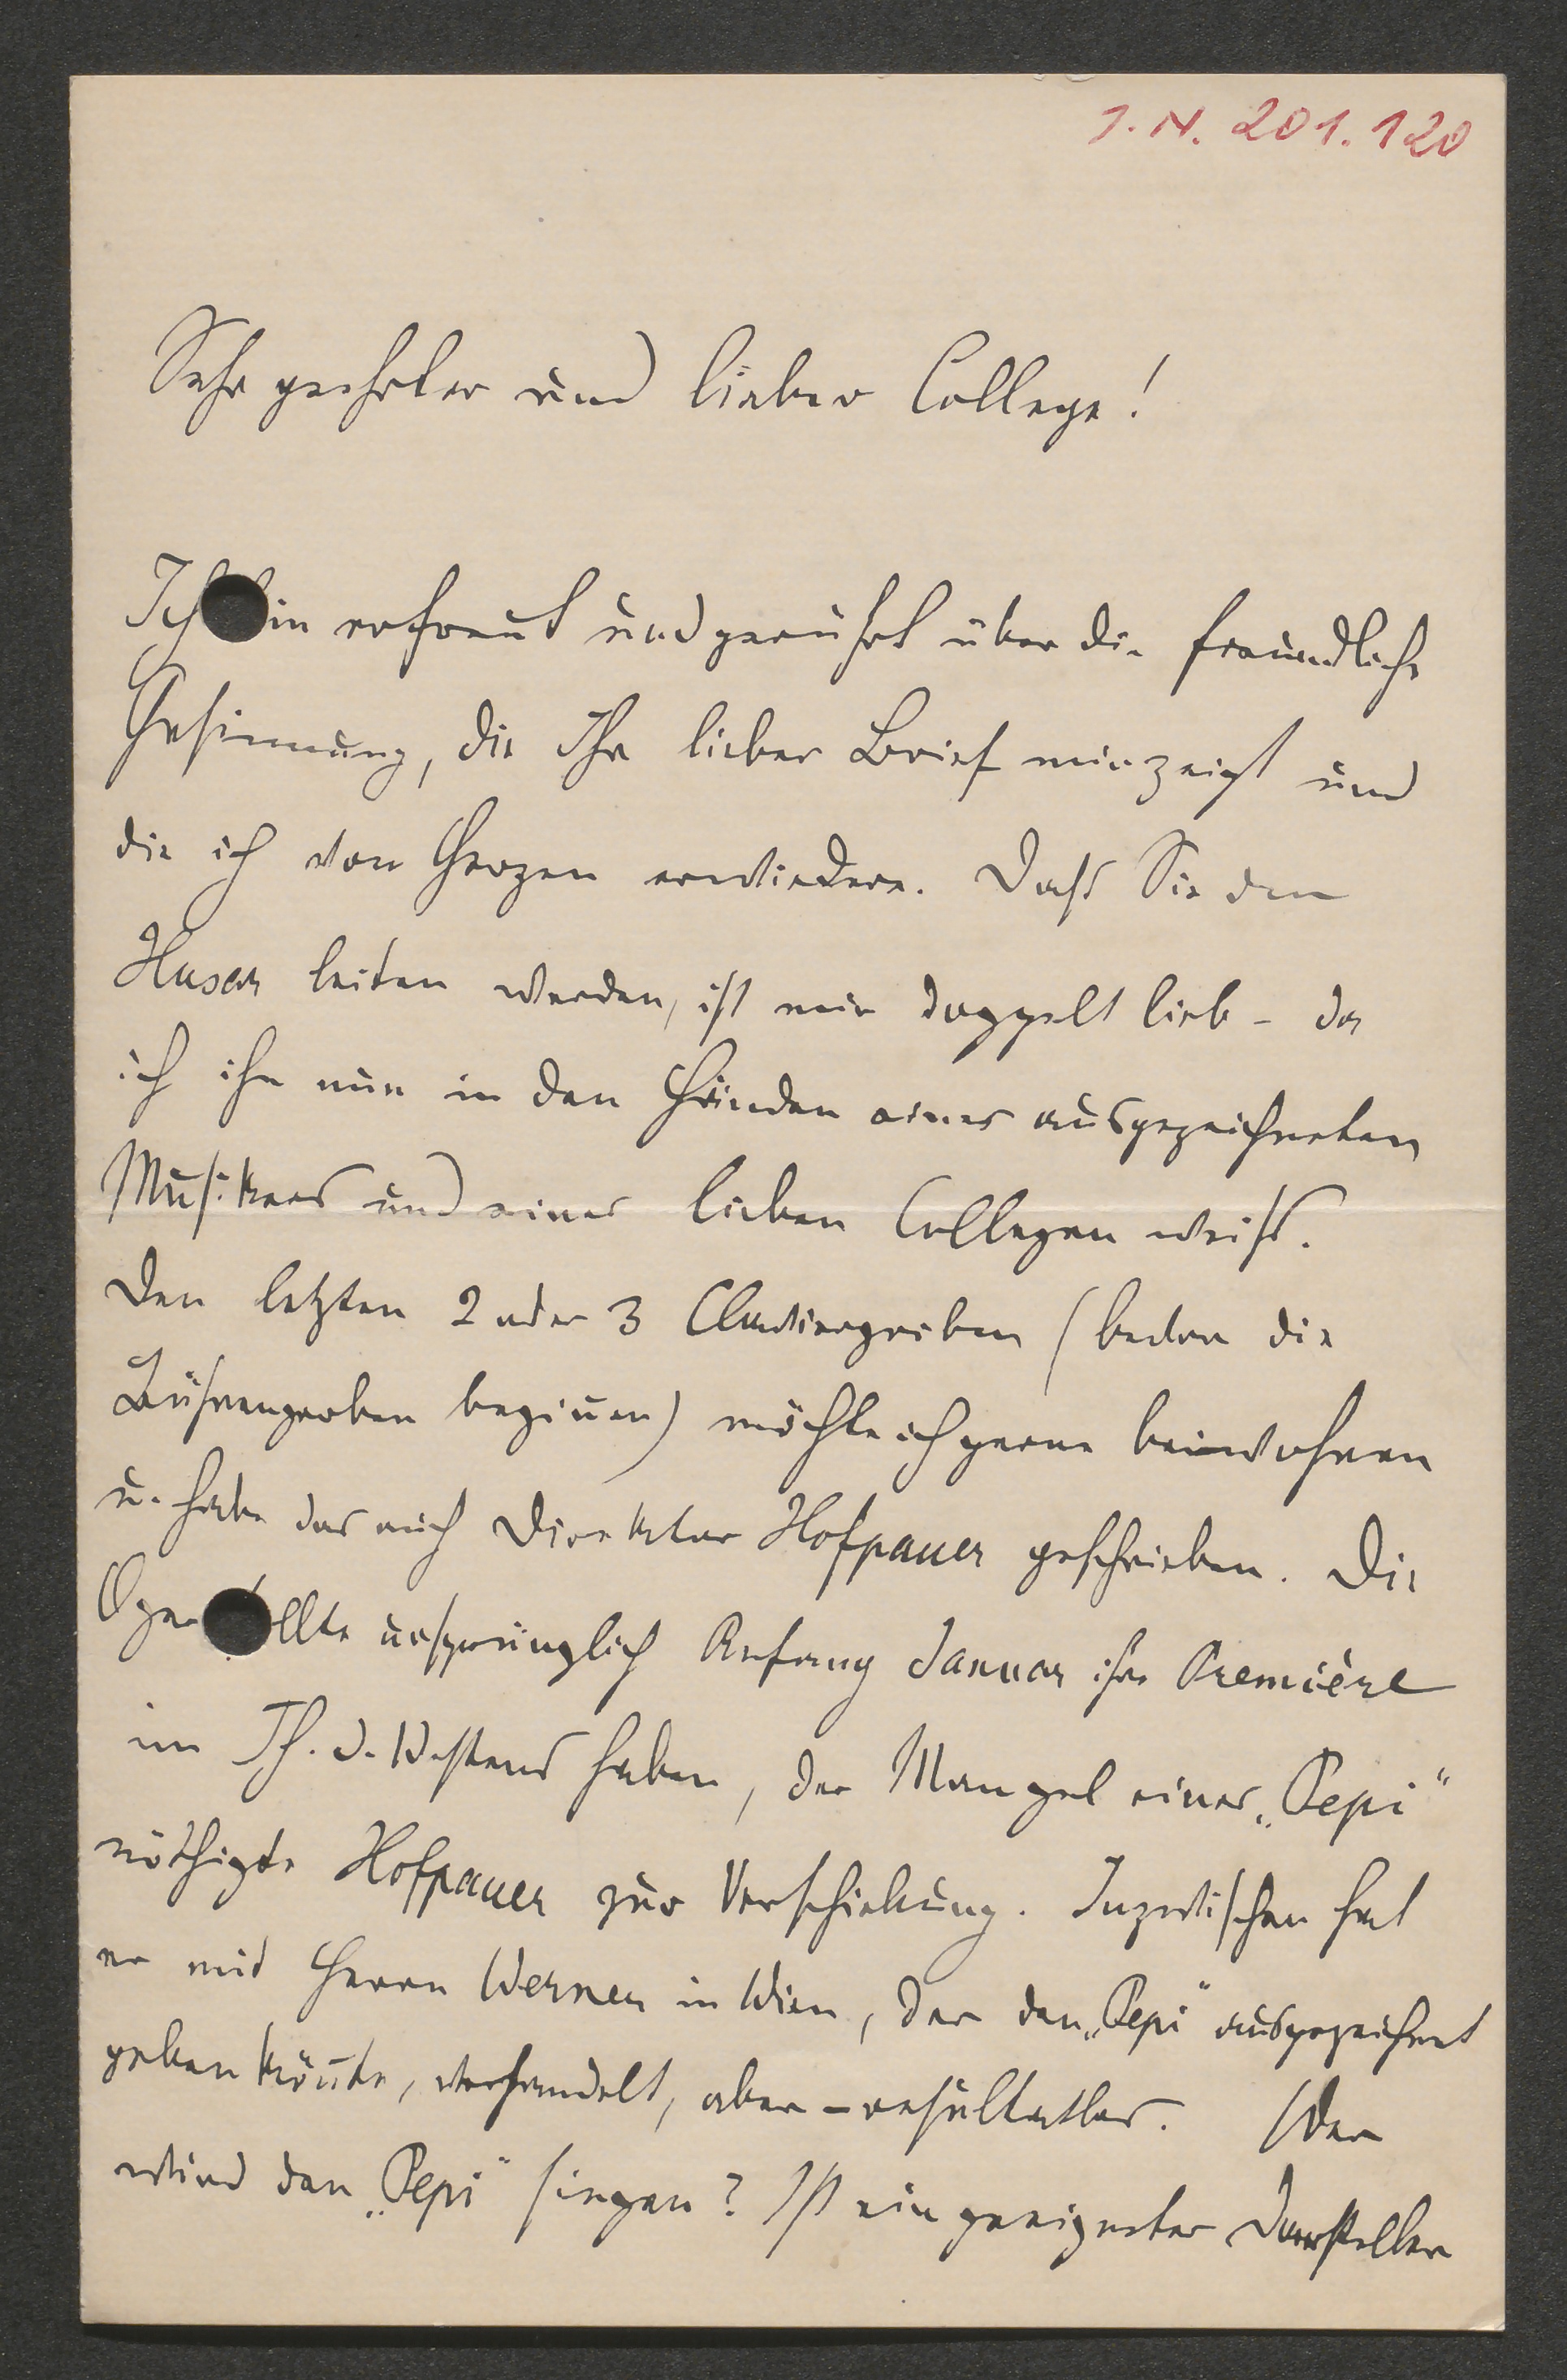 I. N. 201.120
Sehr geehrter und lieber College!
Ich bin erfreut und gerührt über die freundliche
Gesinnung, die Ihr lieber Brief mir zeigt und
die ich von Herzen erwiedere. Dass Sie den
Husar leiten werden, ist mir doppelt lieb – da
ich ihn nun in den Händen eines ausgezeichneten
Musikers und eines lieben Collegen weiß.
Den letzten 2 oder 3 Clavierproben (bevor die
Bühnenproben beginnen) möchte ich gerne beiwohnen
u. habe das auch Direktor Hofpauer geschrieben. Die
Oper sollte ursprünglich Anfang Januar ihre Première
im Th. d. Westens haben, der Mangel eines „Pepi“
nöthigte Hofpauer zur Verschiebung. Inzwischen hat
er mit Herrn Werner in Wien, der den „Pepi“ ausgezeichnet
geben könnte, verhandelt, aber – resultatlos. Wer
wird den „Pepi“ singen? Ist ein geeigneter Darsteller